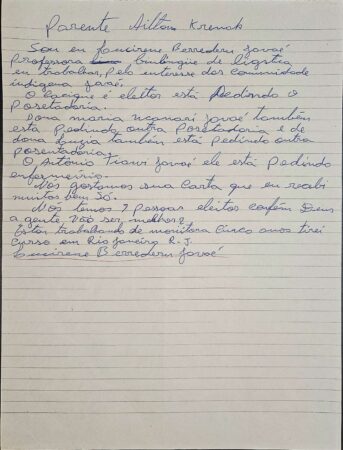 Parente Ailton Krenak
Sou eu Lucirene Berrederu Javaé
Professora bulingue de ligstica
eu trabalhar, pelo interesse dos comunidade
indígena Javaé.
O Cacique é eleitos está Pedindo o
Posetadoria.
Dona maria também
está pedindo outra Posetadoria e de
dona Luzia também está pedindo outra
posentadoria.
O Antônio Javaé ele está Pedindo
enfermeiro.
Nós gostamos sua Carta que eu recebi
muitos bem só.
Nós temos 7 pessoas eleitos confém Deus
a gente vão ser melhor?
Estou trabalhando de monitora Cinco anos tirei
Curso em Rio janeiro R.J.
Lucirene Berrederu Javaé